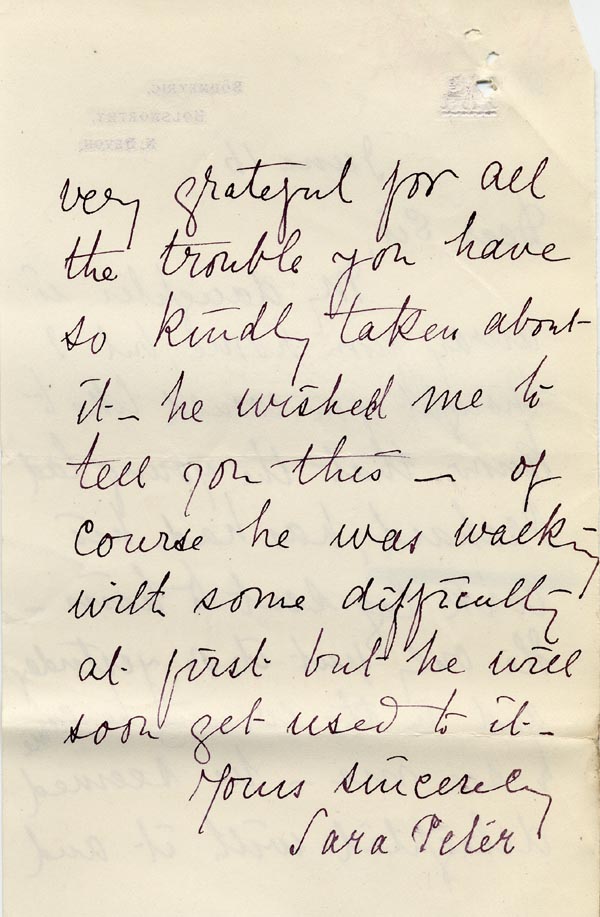 very grateful for all
the trouble you have
so kindly taken about
it – he wished me to
tell you this – of
course he was walking
with some difficulty
at first but he will
soon get used to it –
Yours sincerely
Sara Peter